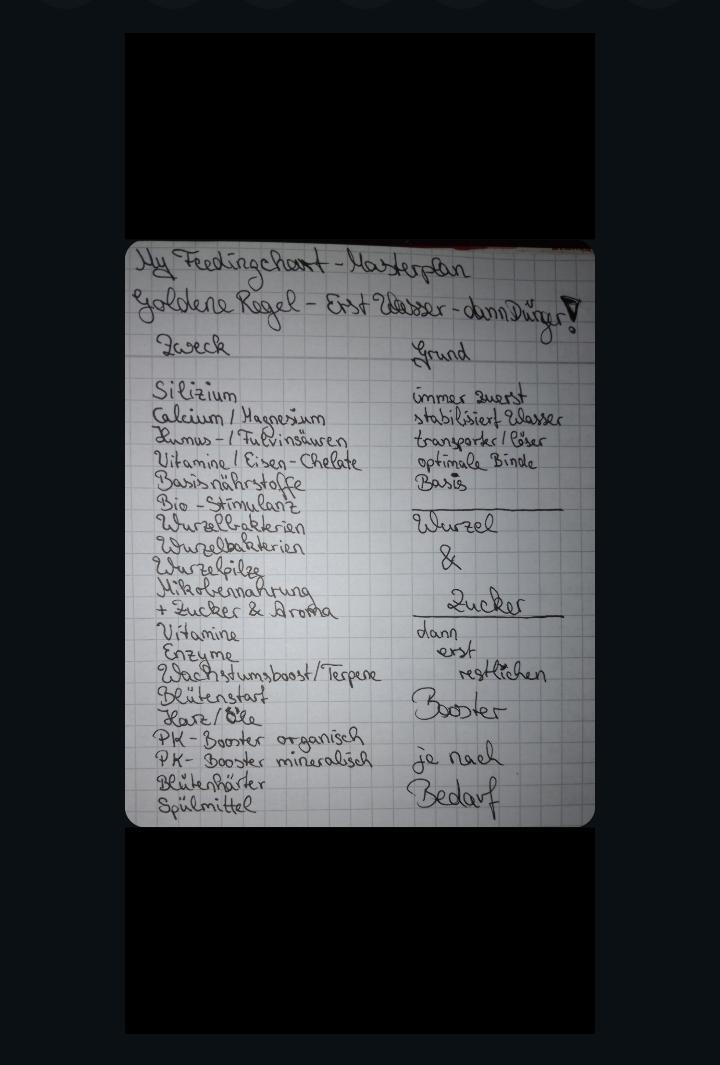 My Feedingchart - Masterplan
Goldene Regel - Erst Wasser - dann Dünger!
Zweck Grund
Silizium immer zuerst
Calcium / Magnesium stabilisiert Wasser
Humus - / Fulvinsäuren transporter / löser
Vitamine / Eisen - Chelate optimale Binde
Basisnährstoffe Basis
Bio - Stimulanz
Wurzelbakterien Wurzel
Wurzelbakterien &
Wurzelpilze
Mikobennahrung
+ Zucker & Aroma Zucker
Vitamine dann
Enzyme erst
Wachstumsboost / Terpene restlichen
Blütenstart Booster
Harz / Öle
PK - Booster organisch
PK - Booster mineralisch je nach
Blütenhärter Bedarf
Spülmittel